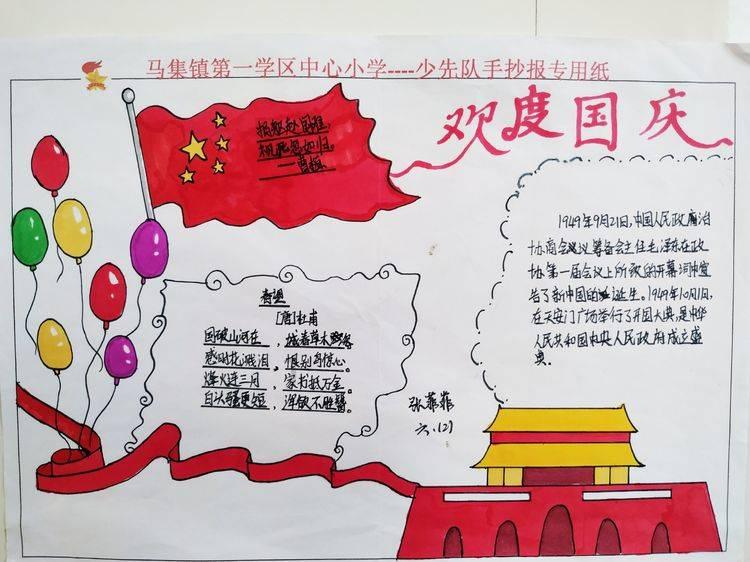 马集镇第一学区中心小学----少先队手抄报专用纸
欢度国庆
捐躯赴国难,
视死忽如归。
——曹植
春望
[唐]杜甫
国破山河在,城春草木深
感时花溅泪,恨别鸟惊心。
烽火连三月,家书抵万金。
白头搔更短,浑欲不胜簪。
1949年9月21日,中国人民政府治
协商会议筹备会主任毛泽东在政
协第一届会议上所致的开幕词中宣
告了新中国的诞生。1949年10月1日,
在天安门广场举行了开国大典,是中华
人民共和国中央人民政府成立盛
典。
张菲菲
六.(2)